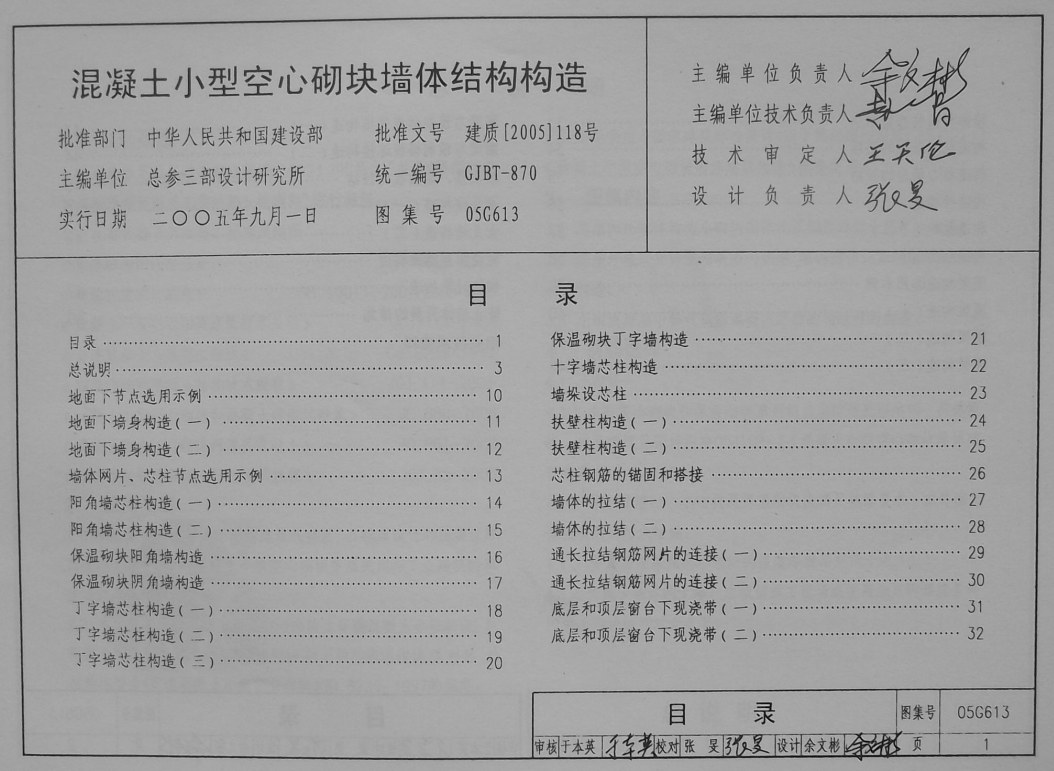 混凝土小型空心砌块墙体结构构造
批准部门 中华人民共和国建设部 批准文号 建质[2005]118号
主编单位 总参三部设计研究所 统一编号 GJBT-870
实行日期 二〇〇五年九月一日 图集号 05G613
主编单位负责人 余文彬
主编单位技术负责人
技术审定人 王天伦
设计负责人 张旻
目 录
目录 1
总说明 3
地面下节点选用示例 10
地面下墙身构造(一) 11
地面下墙身构造(二) 12
墙体网片、芯柱节点选用示例 13
阳角墙芯柱构造(一) 14
阳角墙芯柱构造(二) 15
保温砌块阳角墙构造 16
保温砌块阴角墙构造 17
丁字墙芯柱构造(一) 18
丁字墙芯柱构造(二) 19
丁字墙芯柱构造(三) 20
保温砌块丁字墙构造 21
十字墙芯柱构造 22
墙垛设芯柱 23
扶壁柱构造(一) 24
扶壁柱构造(二) 25
芯柱钢筋的锚固和搭接 26
墙体的拉结(一) 27
墙体的拉结(二) 28
通长拉结钢筋网片的连接(一) 29
通长拉结钢筋网片的连接(二) 30
底层和顶层窗台下现浇带(一) 31
底层和顶层窗台下现浇带(二) 32
目 录 图集号 05G613
审核 于本英 于本英 校对 张 旻 张旻 设计 余文彬 余文彬 页 1